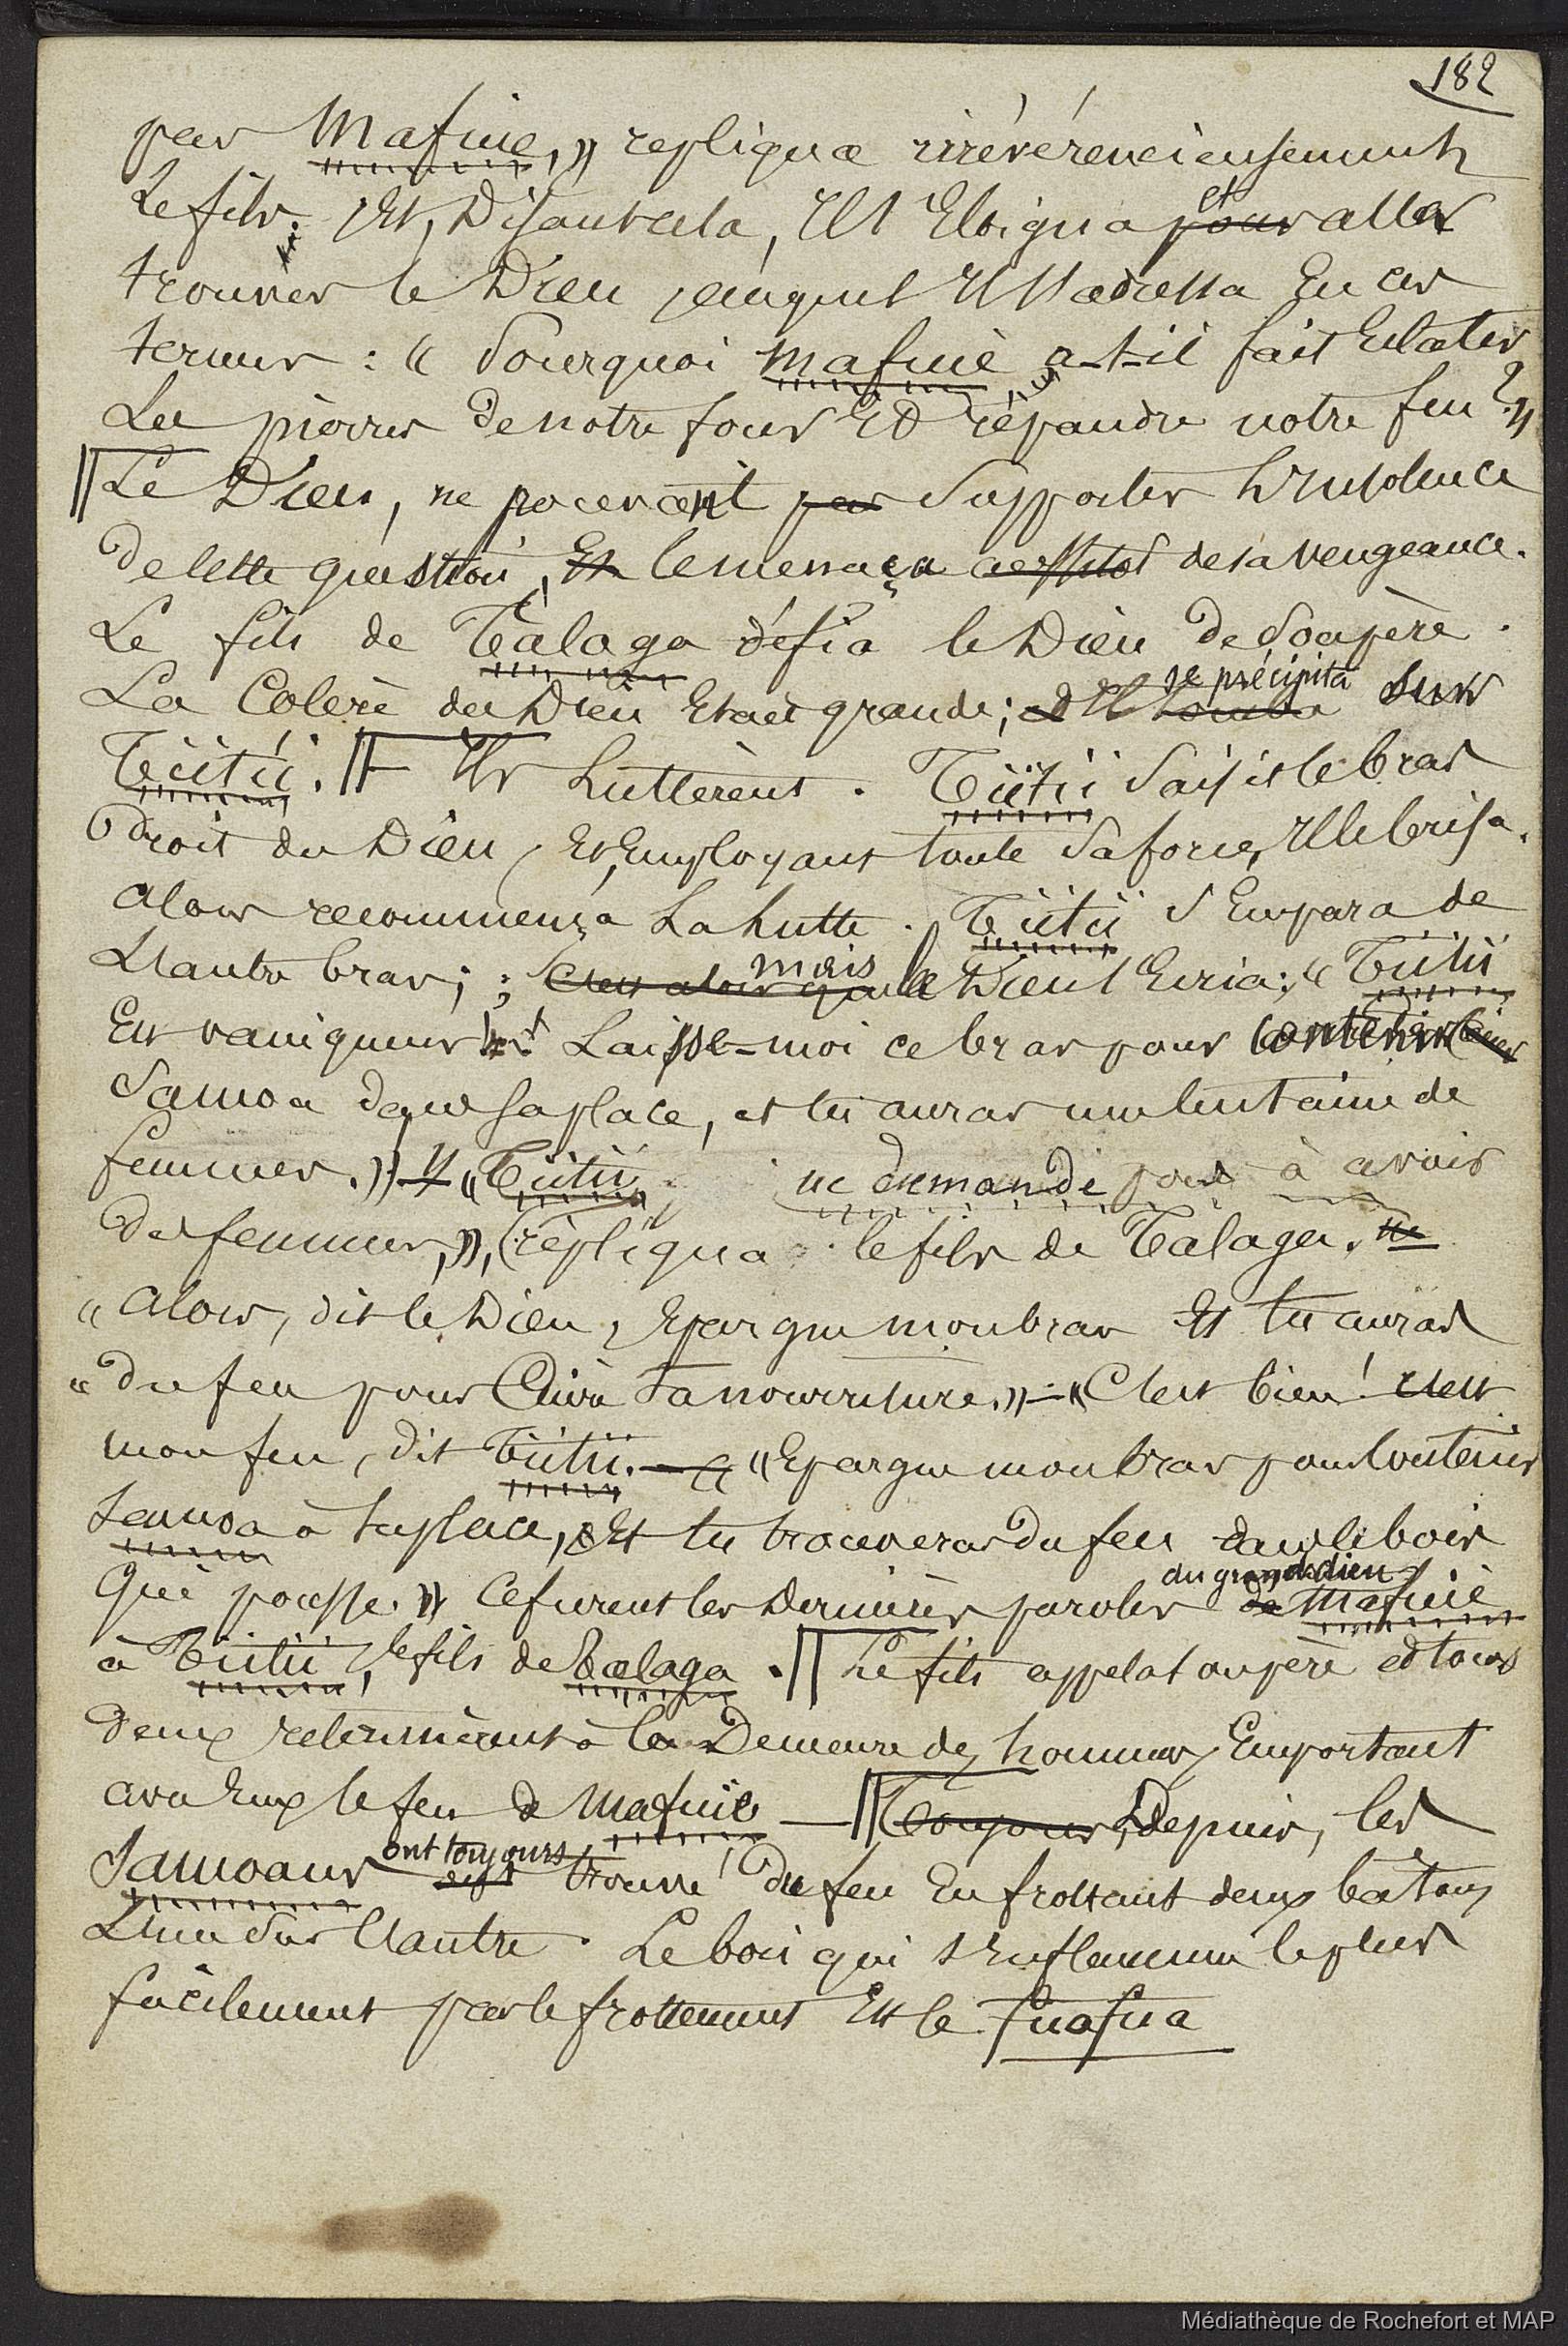 182
par Mafuie,» repliqua irrévérencieusement
le fils. Et, disant cela, il s'éloigna pour et alla
trouver le Dieu auquel il s'adressa en ces
termes : « Pourquoi Mafuiè a-t-il fait éclater
les pierres de notre four et répandre notre feu ?»
Le Dieu, ne pouvant pas supporter l'insolence
de cette question, Et le menaça aussitôt de sa vengeance.
Le fils de Talaga défia le Dieu de son père.
La Colère du Dieu était grande; et Il tomba se précipita sur
Tiitii. Ils luttèrent. Tiitii saisit le bras
droit du Dieu, et, employant toute sa force, il le brisa.
Alors recommença la lutte. Tiitii s'empara de
l'autre bras; ; C'est alors que mais le Dieu s'écria: « Tiitii
est vainqueur ! Laisse-moi ce bras pour contenir
Samoa dans sa place, et tu auras une centaine de
femmes.» « Tiitii ne demande pas à avoir
des femmes,», répliqua le fils de Talaga.
« Alors, dit le Dieu, épargne mon bras et tu auras
« du feu pour Cuire ta nourriture.» — « C'est bien! c'est
mon feu, dit Tiitii. — « Epargne mon bras pour soutenir
Samoa à sa place, et tu trouveras du feu dans le bois
qui pousse.» Ce furent les dernières paroles de du grand dieu Mafuiè
à Tiitii, le fils de Talaga. Le fils appela son père et tous
deux retournèrent à la Demeure des hommes, Emportant
avec Eux le feu de Mafuiè — Toujours, Depuis, les
Samoans ont toujours trouvé du feu En frottant deux bâtons
l'un sur l'autre. Le bois qui s'enflamme le plus
facilement par le frottement Est le fuafua
Médiathèque de Rochefort et MAP